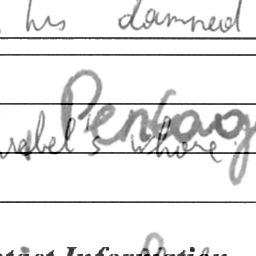 his damned
Pentag
's whore.
tact Information